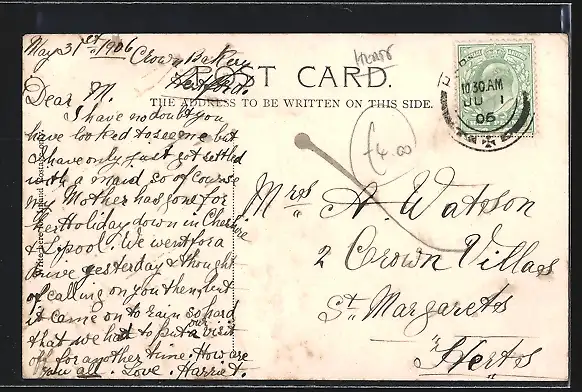 May 31st 1906
Crown Bakery
Hertford.
HERTS
POST CARD.
THE ADDRESS TO BE WRITTEN ON THIS SIDE.
10 30 AM
JU 1
06
£4.00
Dear M.
I have no doubt you
have looked to see me but
I have only just got settled
with a maid so of course
my Mother has gone for
her Holiday down in Cheshire
& Lipool. We went for a
drive yesterday & thought
of calling on you then, but
it came on to rain so hard
that we had to put our visit
off for another time. How are
you all. Love. Harriet.
Mrs A. Watson
2 Crown Villas
St. Margarets
Herts